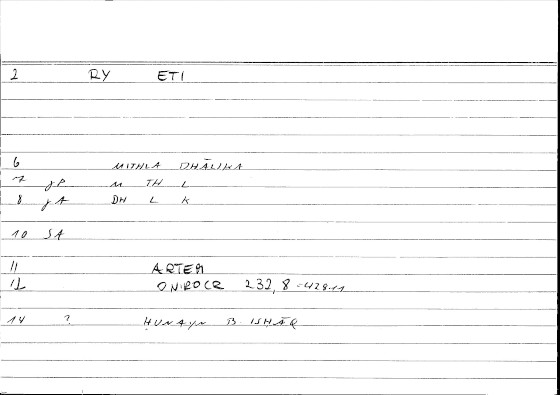 2 RY ETI
6 MITHLA DHĀLIKA
7 gP M TH L
8 gA DH L K
10 SA
11 ARTEM
12 ONIROCR 232,8 = 428.11
14 ? HUNAYN B. ISHĀQ